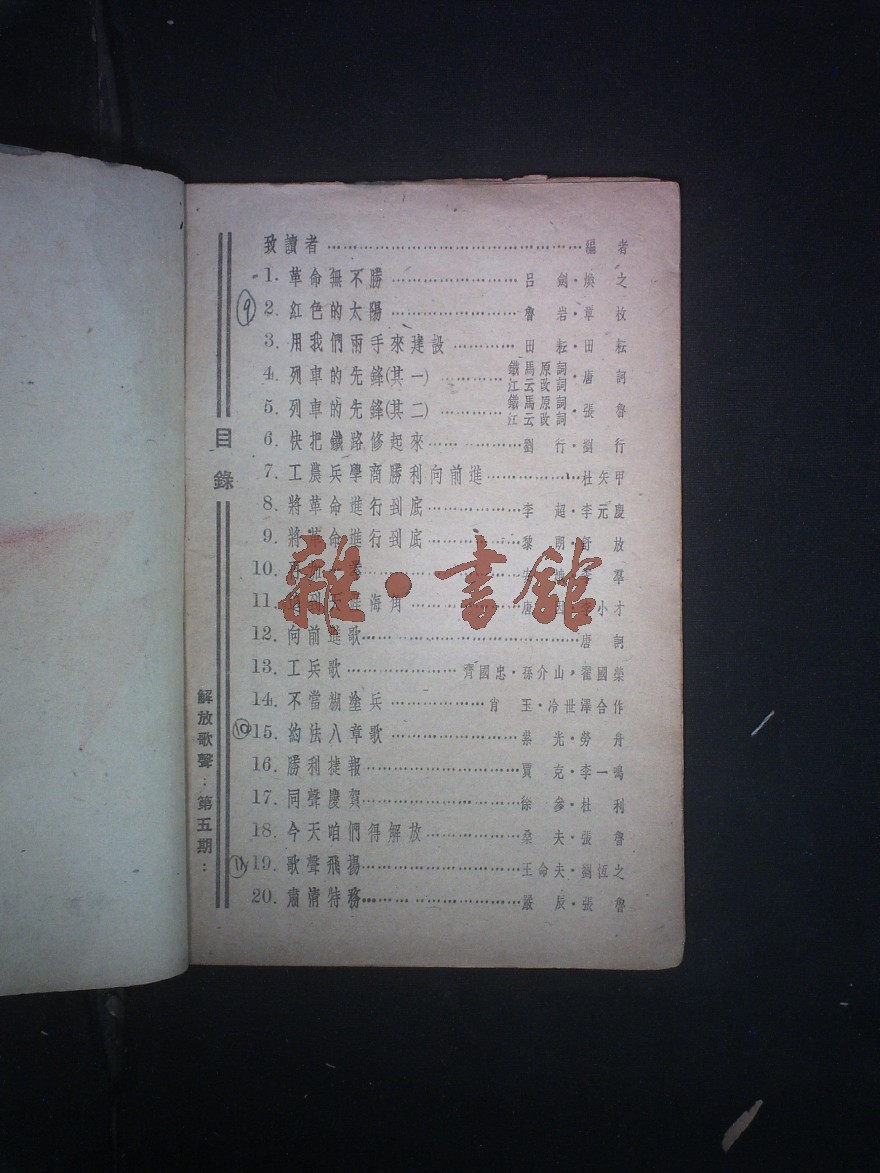 致讀者……編者
1. 革命無不勝……呂劍·煥之
2. 紅色的太陽……魯岩·章枚
3. 用我們兩手來建設……田耘·田耘
4. 列車的先鋒(其一)……鐵馬原詞 江云改詞·唐訶
5. 列車的先鋒(其二)……鐵馬原詞 江云改詞·張魯
6. 快把鐵路修起來……劉行·劉行
7. 工農兵學商勝利向前進……杜矢甲
8. 將革命進行到底……李超·李元慶
9. 將革命進行到底……黎朗·舒放
10. ……羣
11. 海角……唐小才
12. 向前進歌……唐訶
13. 工兵歌……齊國忠·孫介山,霍國榮
14. 不當糊塗兵……肖玉·冷世澤合作
15. 約法八章歌……光·勞舟
16. 勝利捷報……賈克·李一鳴
17. 同聲慶賀……徐參·杜利
18. 今天咱們得解放……桑夫·張魯
19. 歌聲飛揚……王命夫·劉恆之
20. 肅清特務……嚴辰·張魯
目錄
解放歌聲:第五期:
9
10
11
雜·書館